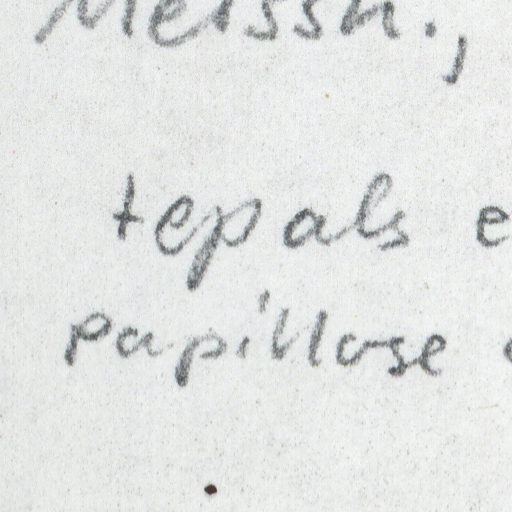 Meissn.,
tepals e
papillose